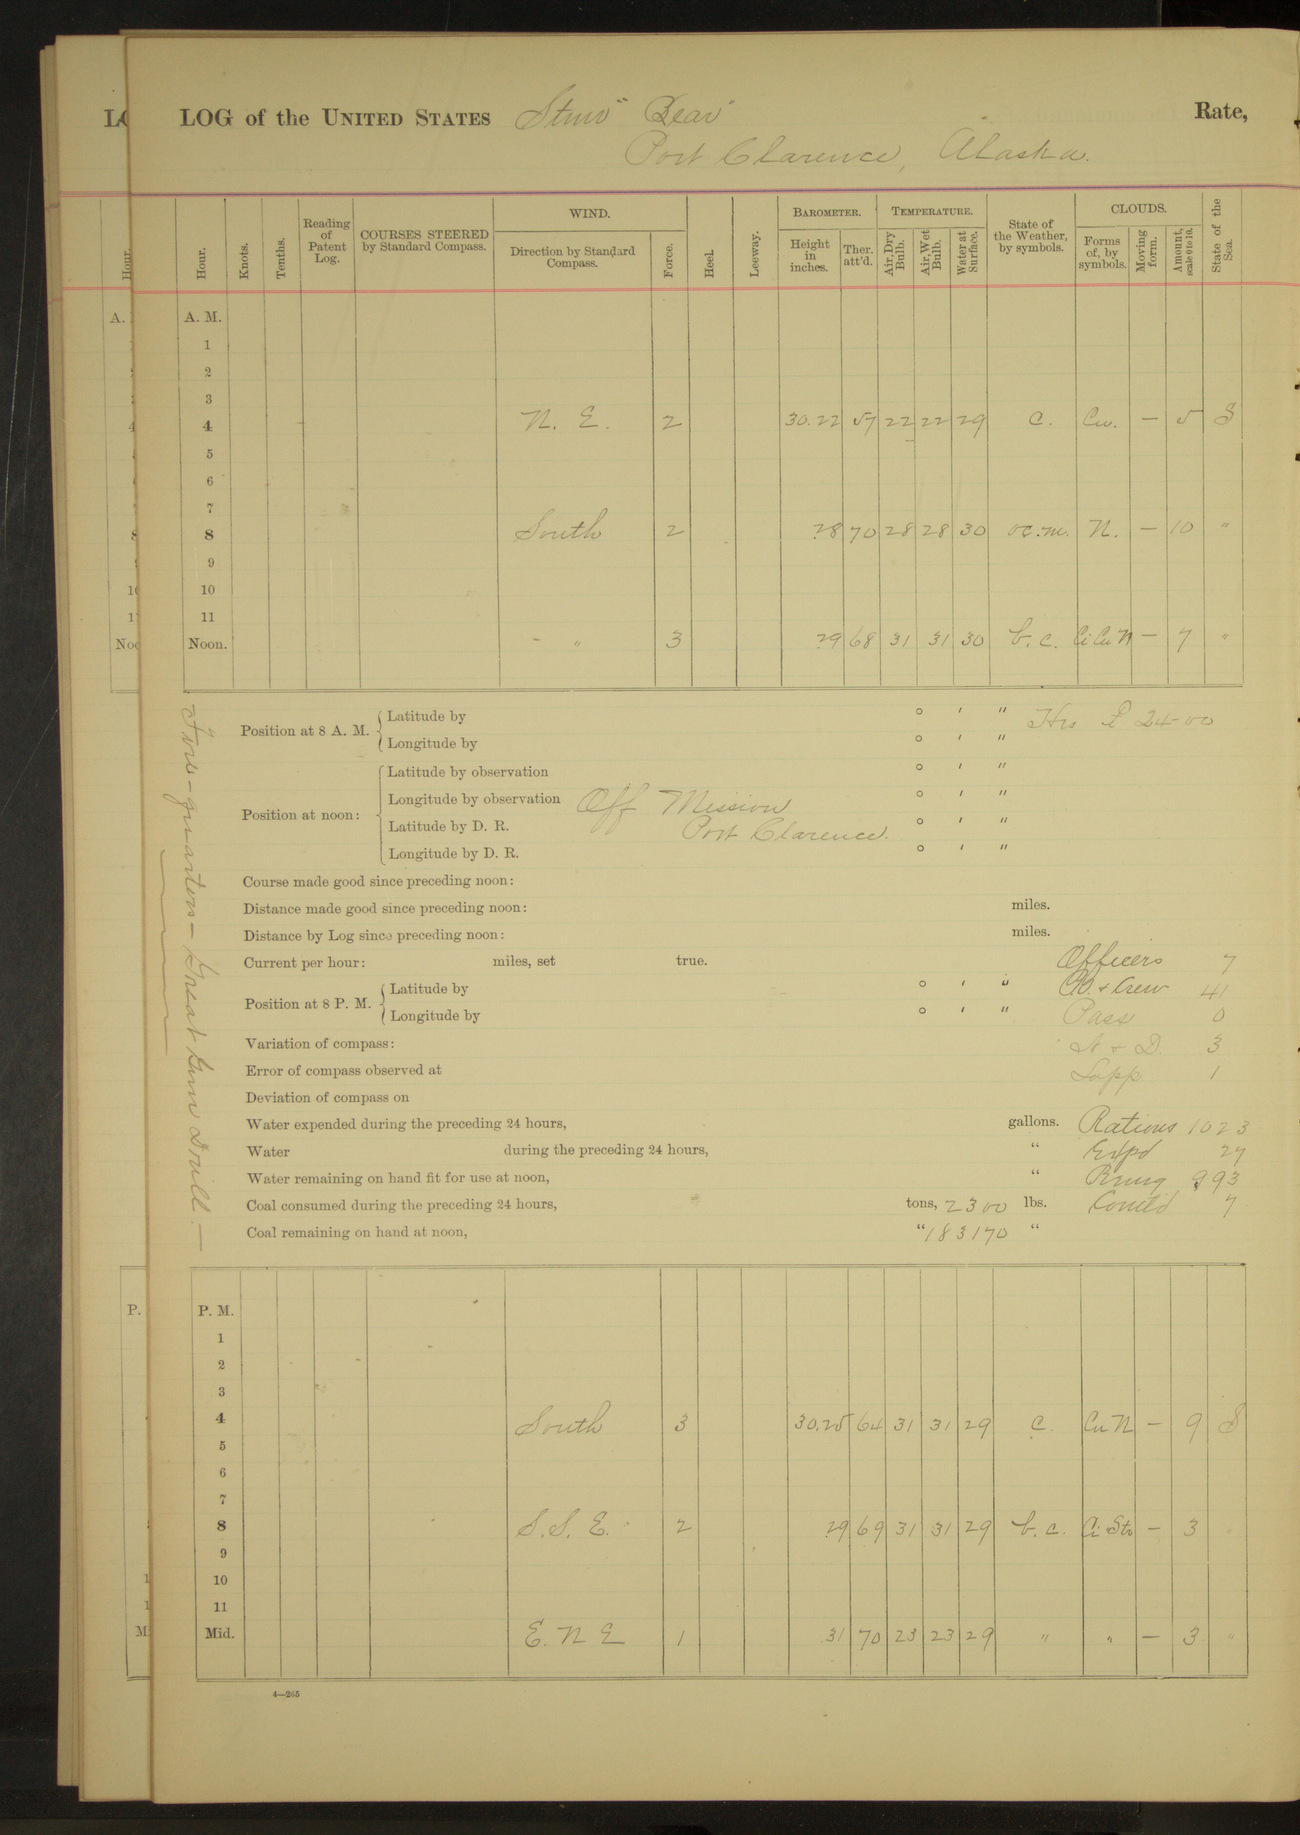 LOG of the UNITED STATES Stmr "Bear" Rate,
Port Clarence, Alaska.
Hour. Knots. Tenths. Reading of Patent Log. COURSES STEERED by Standard Compass. WIND. Direction by Standard Compass. Force. Heel. Leeway. BAROMETER. Height in inches. Ther. att'd. TEMPERATURE. Air, Dry Bulb. Air, Wet Bulb. Water at Surface. State of the Weather, by symbols. CLOUDS. Forms of, by symbols. Moving form. Amount, scale 0 to 10. State of the Sea.
A. M.
1
2
3
4 N. E. 2 30.22 57 22 22 29 c. Cu. — 5 S
5
6
7
8 South 2 .28 70 28 28 30 oc.m. N. — 10 "
9
10
11
Noon. " 3 .29 68 31 31 30 b. c. Ci Cu N — 7 "
Position at 8 A. M. Latitude by ° ′ ″ Hrs 24-00
Longitude by ° ′ ″
Position at noon: Latitude by observation ° ′ ″
Longitude by observation Off Mission ° ′ ″
Latitude by D. R. Port Clarence. ° ′ ″
Longitude by D. R. ° ′ ″
Course made good since preceding noon:
Distance made good since preceding noon: miles.
Distance by Log since preceding noon: miles.
Current per hour: miles, set true. Officers 7
Position at 8 P. M. Latitude by ° ′ ″ & Crew 41
Longitude by ° ′ ″ Pass 0
Variation of compass: & D. 3
Error of compass observed at Lapp 1
Deviation of compass on
Water expended during the preceding 24 hours, gallons. Rations 1023
Water during the preceding 24 hours, " Expd 27
Water remaining on hand fit for use at noon, " Rmng 993
Coal consumed during the preceding 24 hours, tons, 2300 lbs. 7
Coal remaining on hand at noon, " 183170 "
Fire-quarters— Great Gun Drill.—
P. M.
1
2
3
4 South 3 30.25 64 31 31 29 c. Cu N — 9 S
5
6
7
8 S. S. E. 2 .29 69 31 31 29 b. c. Ci Str — 3
9
10
11
Mid. E. N E 1 .31 70 23 23 29 " " — 3 "
4—265